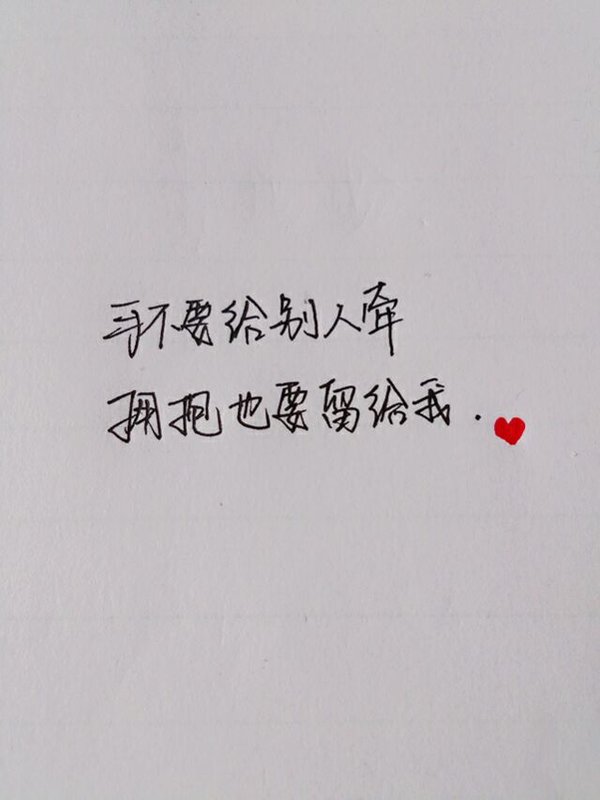 手不要给别人牵
拥抱也要留给我.